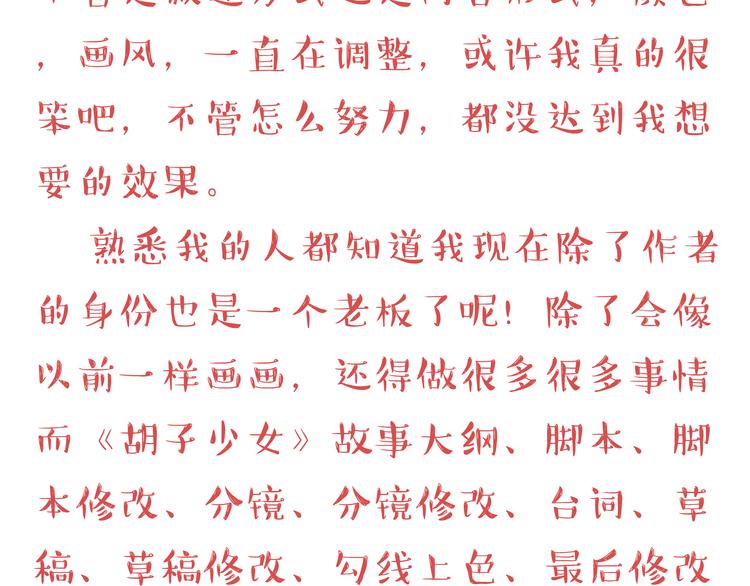 ，画风，一直在调整，或许我真的很
笨吧，不管怎么努力，都没达到我想
要的效果。
熟悉我的人都知道我现在除了作者
的身份也是一个老板了呢！除了会像
以前一样画画，还得做很多很多事情
而《胡子少女》故事大纲、脚本、脚
本修改、分镜、分镜修改、台词、草
稿、草稿修改、勾线上色、最后修改